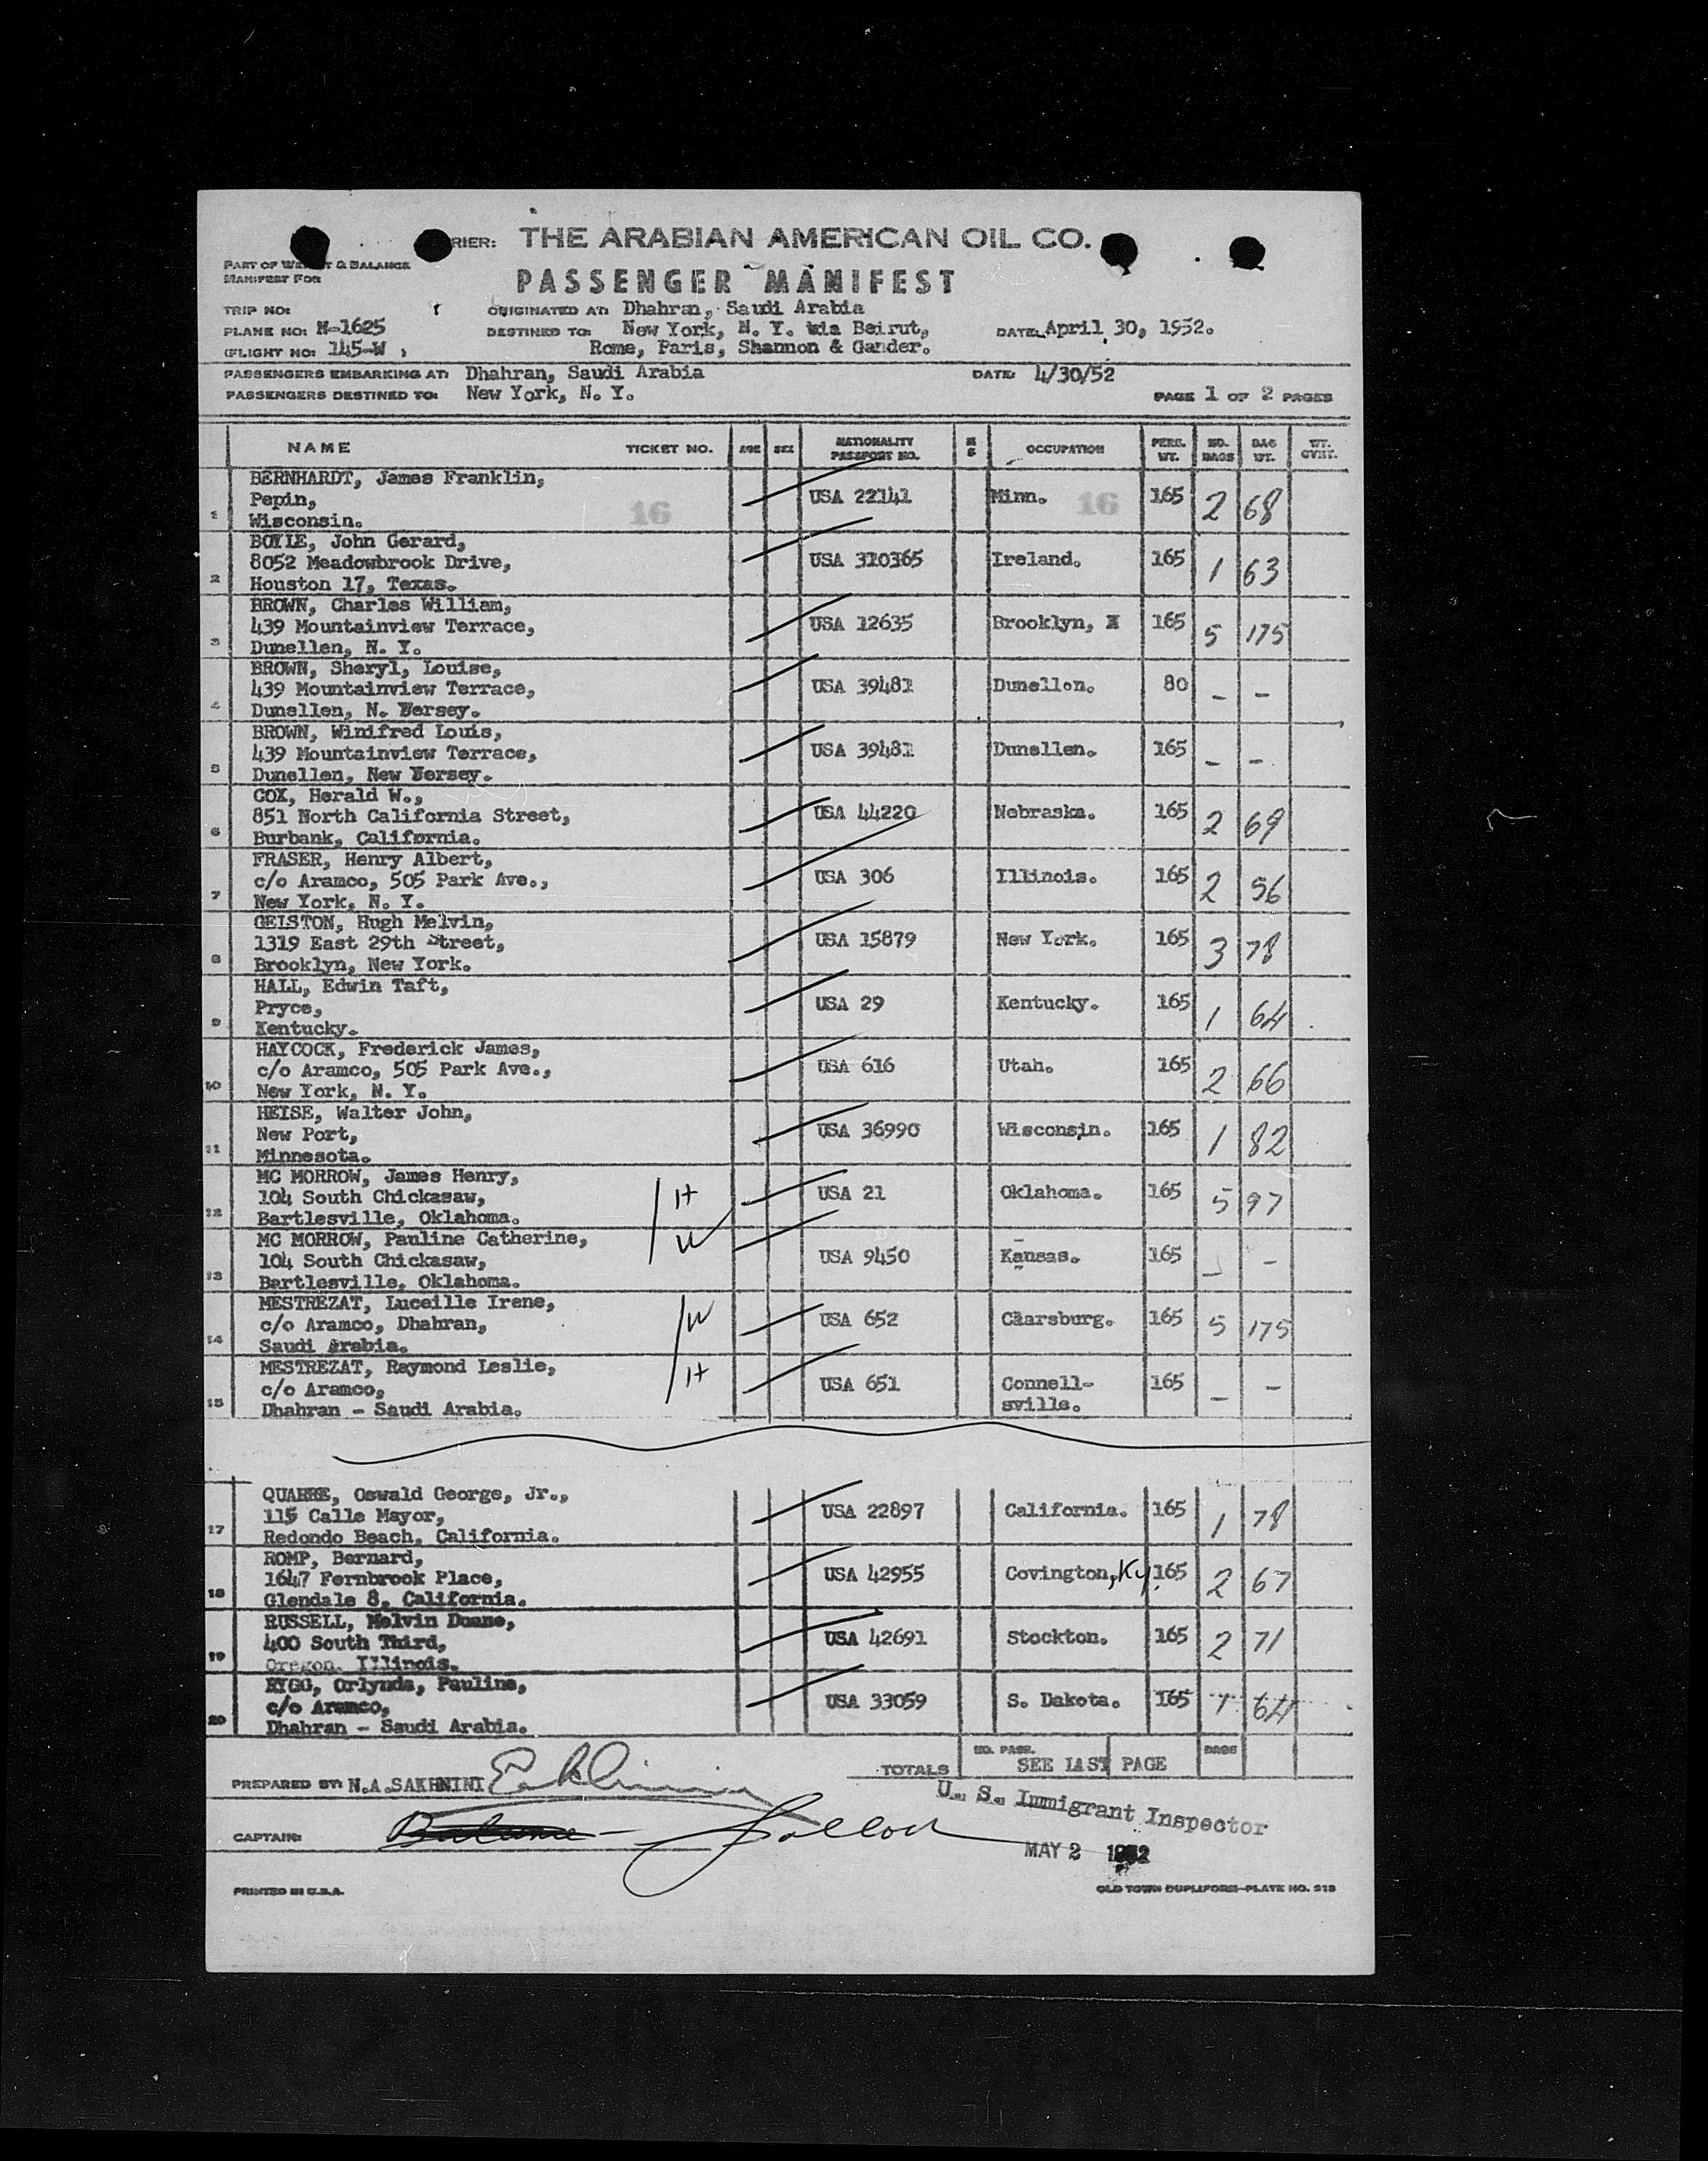 RIER: THE ARABIAN AMERICAN OIL CO.
PART OF WEIGHT & BALANCE
MANIFEST FOR
PASSENGER MANIFEST
TRIP NO: ORIGINATED AT: Dhahran, Saudi Arabia
PLANE NO: N-1625 DESTINED TO: New York, N. Y. via Beirut, DATE: April 30, 1952.
(FLIGHT NO: 145-W ) Rome, Paris, Shannon & Gander.
PASSENGERS EMBARKING AT: Dhahran, Saudi Arabia DATE: 4/30/52
PASSENGERS DESTINED TO: New York, N. Y. PAGE 1 OF 2 PAGES
NAME TICKET NO. AGE SEX NATIONALITY PASSPORT NO. M S OCCUPATION PERS. WT. NO. BAGS BAG WT. WT. CVHT.
BERNHARDT, James Franklin,
Pepin, 16 USA 22141 Minn. 16 165 2 68
1 Wisconsin.
BOYLE, John Gerard,
8052 Meadowbrook Drive, USA 310365 Ireland. 165 1 63
2 Houston 17, Texas.
BROWN, Charles William,
439 Mountainview Terrace, USA 12635 Brooklyn, 165 5 175
3 Dunellen, N. Y.
BROWN, Sheryl, Louise,
439 Mountainview Terrace, USA 39481 Dunellen. 80 - -
4 Dunellen, N. Jersey.
BROWN, Winifred Louis,
439 Mountainview Terrace, USA 39481 Dunellen. 165 - -
5 Dunellen, New Jersey.
COX, Herald W.,
851 North California Street, USA 44220 Nebraska. 165 2 69
6 Burbank, California.
FRASER, Henry Albert,
c/o Aramco, 505 Park Ave., USA 306 Illinois. 165 2 56
7 New York, N. Y.
GELSTON, Hugh Melvin,
1319 East 29th Street, USA 15879 New York. 165 3 78
8 Brooklyn, New York.
HALL, Edwin Taft,
Pryce, USA 29 Kentucky. 165 1 64
9 Kentucky.
HAYCOCK, Frederick James,
c/o Aramco, 505 Park Ave., USA 616 Utah. 165 2 66
10 New York, N. Y.
HEISE, Walter John,
New Port, USA 36990 Wisconsin. 165 1 82
11 Minnesota.
MC MORROW, James Henry,
104 South Chickasaw, H USA 21 Oklahoma. 165 5 97
12 Bartlesville, Oklahoma.
MC MORROW, Pauline Catherine, W
104 South Chickasaw, USA 9450 Kansas. 165 - -
13 Bartlesville, Oklahoma.
MESTREZAT, Luceille Irene,
c/o Aramco, Dhahran, W USA 652 Clarsburg. 165 5 175
14 Saudi Arabia.
MESTREZAT, Raymond Leslie,
c/o Aramco, H USA 651 Connell- 165 - -
15 Dhahran - Saudi Arabia. sville.
QUARRE, Oswald George, Jr.,
115 Calle Mayor, USA 22897 California. 165 1 78
17 Redondo Beach, California.
ROMP, Bernard,
1647 Fernbrook Place, USA 42955 Covington, Ky. 165 2 67
18 Glendale 8, California.
RUSSELL, Melvin Duane,
400 South Third, USA 42691 Stockton. 165 2 71
19 Oregon, Illinois.
RYGG, Orlynda, Pauline,
c/o Aramco, USA 33059 S. Dakota. 165 1 64
20 Dhahran - Saudi Arabia.
TOTALS NO. PASS. SEE LAST PAGE BAGS
PREPARED BY: N.A.SAKHNINI
U. S. Immigrant Inspector
CAPTAIN:
MAY 2 1952
PRINTED IN U.S.A. OLD TOWN DUPLIFORM-PLATE NO. 215